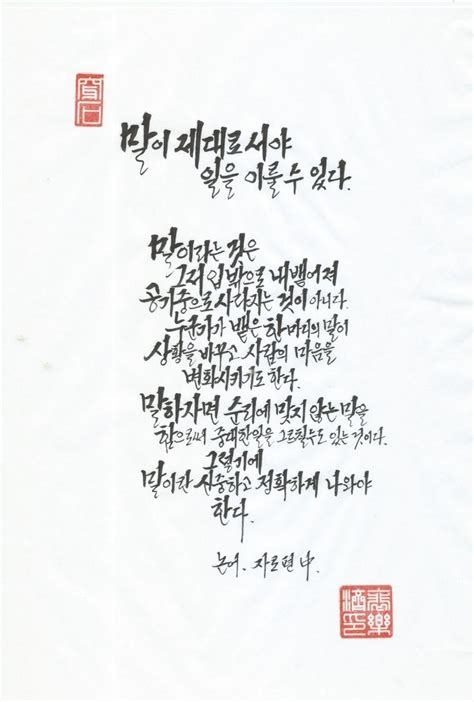 말이 제대로 서야
일을 이룰 수 있다.
말이라는 것은
그저 입 밖으로 내뱉어져
공기중으로 사라지는 것이 아니다.
누군가가 뱉은 한마디의 말이
상황을 바꾸고 사람의 마음을
변화시키기도 한다.
말하자면 순리에 맞지 않는 말을
함으로써 중대한 일을 그르칠 수도 있는 것이다.
그렇기에
말이란 신중하고 정확하게 나와야
한다.
논어. 자로편 中.